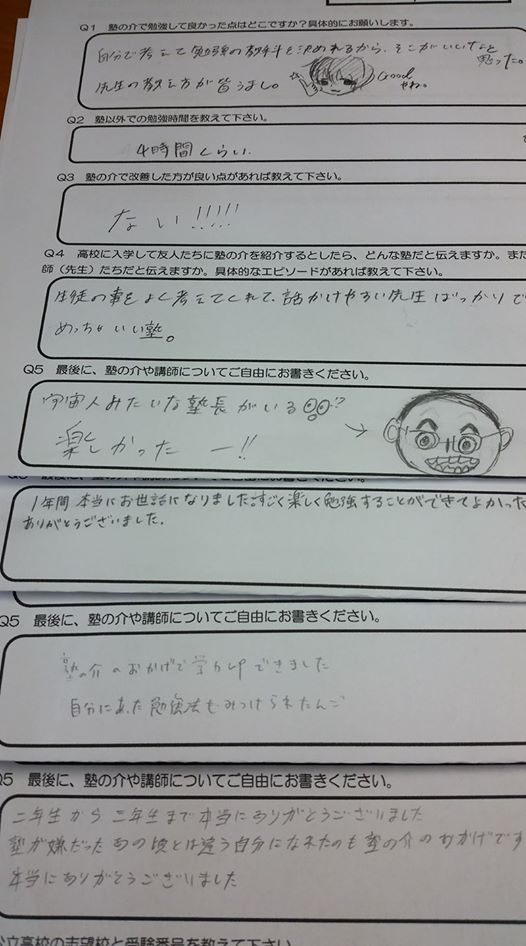 Q1 塾の介で勉強して良かった点はどこですか?具体的にお願いします。
自分で考えて勉強の教科を決めれるから、そこがいいなと
思った。
先生の教え方が皆うまし。
Good
やね。
Q2 塾以外での勉強時間を教えて下さい。
4時間くらい
Q3 塾の介で改善した方が良い点があれば教えて下さい。
ない!!!!!
Q4 高校に入学して友人たちに塾の介を紹介するとしたら、どんな塾だと伝えますか。また
師(先生)たちだと伝えますか。具体的なエピソードがあれば教えて下さい。
生徒の事をよく考えてくれて、話かけやすい先生ばっかりで
めっちゃいい塾。
Q5 最後に、塾の介や講師についてご自由にお書きください。
宇宙人みたいな塾長がいる
楽しかったー!!
1年間本当にお世話になりましたすごく楽しく勉強することができてよかった
ありがとうございました。
Q5 最後に、塾の介や講師についてご自由にお書きください。
塾の介のおかげで学力upできました
自分にあった勉強法もみつけられたんご
Q5 最後に、塾の介や講師についてご自由にお書きください。
二年生から三年生まで本当にありがとうございました
塾が嫌だったあの頃とは違う自分になれたのも塾の介のおかげです
本当にありがとうございました
公立高校の志望校と受験番号を教えて下さい